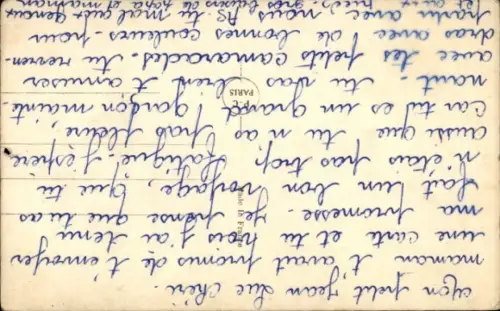 Mon petit Jean Luc Chéri.
maman t'avait promis de t'envoyer
une carte et tu vois j'ai tenu
ma promesse. Je pense que tu as
fait un bon voyage, que tu
n'étais pas trop fatigué. J'espère
aussi que tu n a pas pleuré,
car tu es un grand garçon mainte-
nant. tu vas bien t'amuser
avec tes petits camarades. tu revien-
dras avec de bonnes couleurs. pour
partir avec nous. As tu mal aux genoux
et aux gros baisers de papa et maman
P.C.
PARIS
Made in France